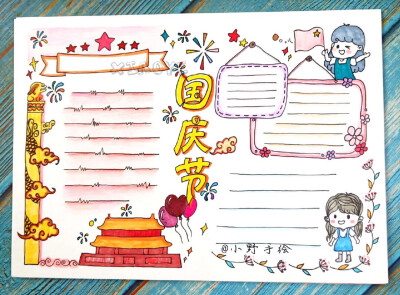 国庆节
@小野手绘